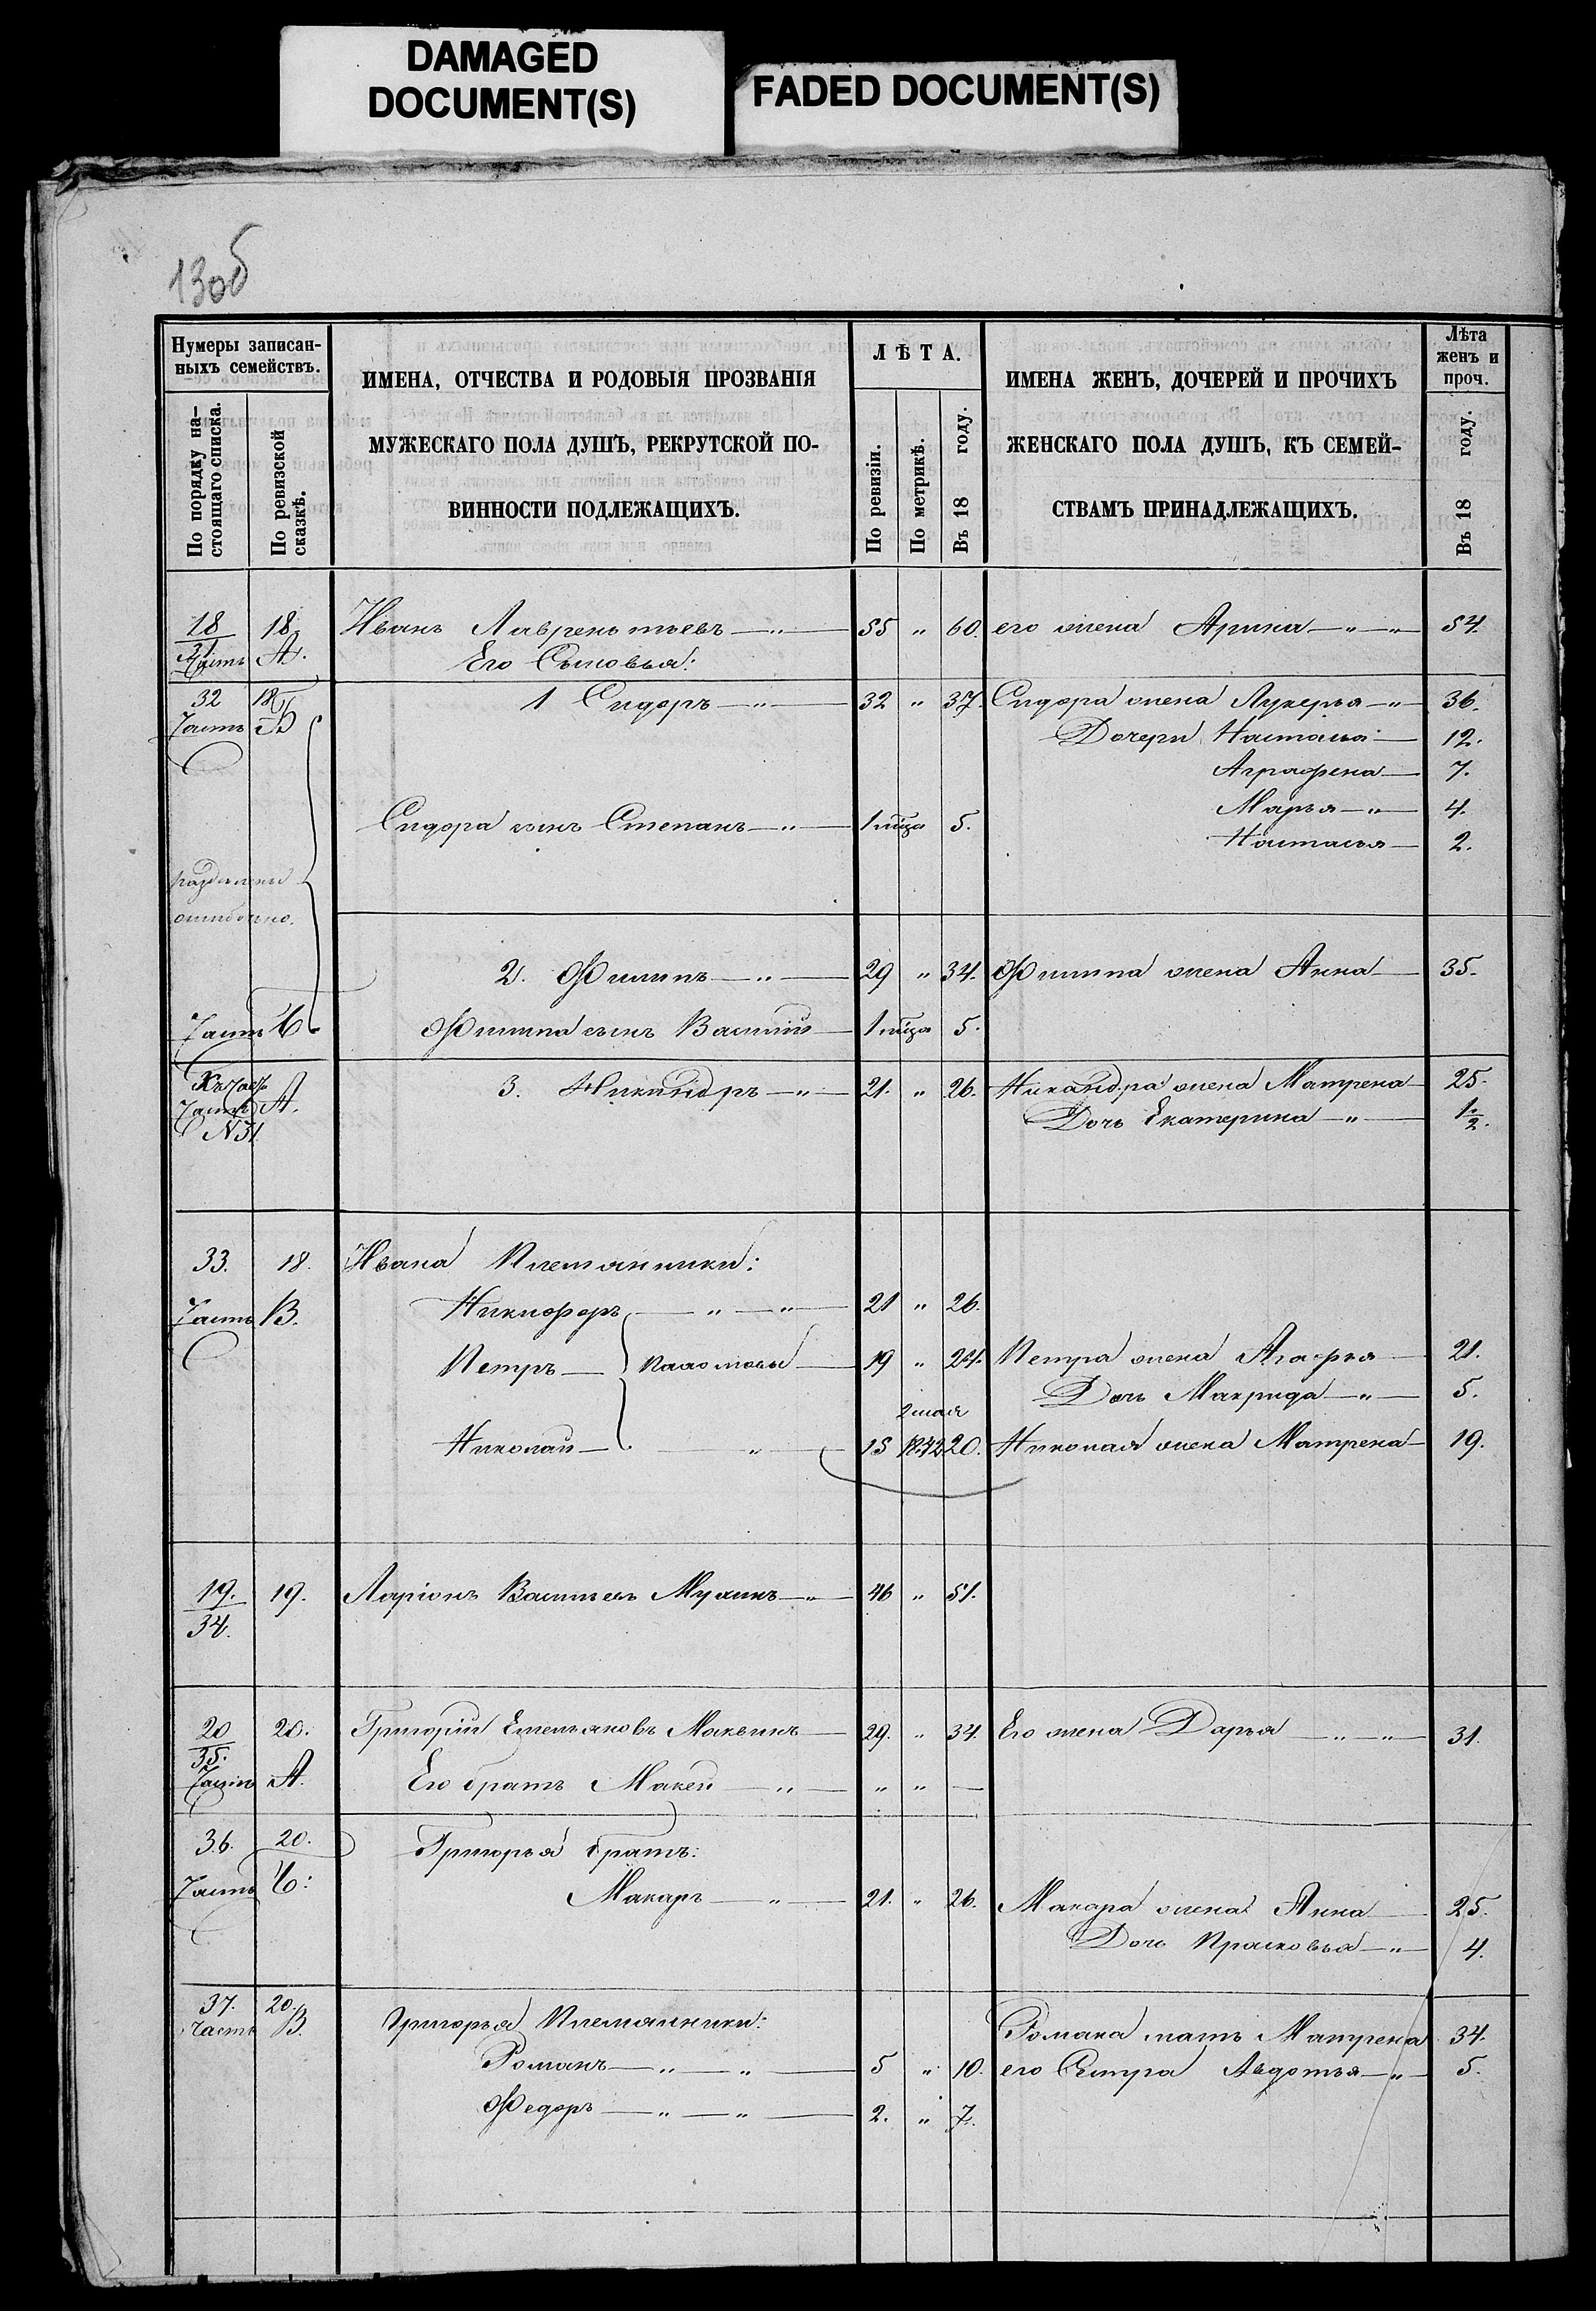 DAMAGED
DOCUMENT(S)
FADED DOCUMENT(S)
130б
Нумеры записан-
ныхъ семействъ.
По порядку на-
стоящаго списка.
По ревизской
сказкѣ.
ИМЕНА, ОТЧЕСТВА И РОДОВЫЯ ПРОЗВАНІЯ
МУЖЕСКАГО ПОЛА ДУШЪ, РЕКРУТСКОЙ ПО-
ВИННОСТИ ПОДЛЕЖАЩИХЪ.
ЛѢТА.
По ревизіи.
По метрикѣ.
Въ 18 году.
ИМЕНА ЖЕНЪ, ДОЧЕРЕЙ И ПРОЧИХЪ
ЖЕНСКАГО ПОЛА ДУШЪ, КЪ СЕМЕЙ-
СТВАМЪ ПРИНАДЛЕЖАЩИХЪ.
Лѣта
женъ и
проч.
Въ 18 году.
18 18 Иванъ Лаврентьевъ —"— 55 " 60. его жена Арина —"—"— 54.
31
Часть А. Его Сыновья:
32 18 1 Сидоръ —"— 32 " 37. Сидора жена Лукерья —"— 36.
Часть Б Дочери Настасья — 12.
Аграфена — 7.
Марья —"— 4.
Сидора сынъ Степанъ —"— 1 мѣца 5.
Настасья — 2.
раздѣлены
ошибочно.
2. Филипъ —"— 29 " 34. Филипа жена Анна — 35.
Часть Филипа сынъ Василій — 1 мѣца 5.
Къ
Часть А. 3. Никандръ —"— 21. " 26. Никандра жена Матрена — 25.
N 31 Дочь Екатерина —"— 1/2.
33. 18. Ивана Племянники:
Часть В. Никифоръ —"—"— 21 " 26.
Петръ — 19 " 24. Петра жена Агафья — 21.
Дочь Макрида —"— 5.
2 мая
Николай — " — 15 1842 20. Николая жена Матрена — 19.
19. 19. Ларіонъ Васильевъ —"— 46 " 51.
34.
20 20. Григорій Емельяновъ — 29. " 34. Его жена Дарья —"—"— 31.
35.
Часть А. Его братъ Макей —"— " " —
36. 20. Григорья братъ:
Часть Макаръ —"— 21. " 26. Макара жена Анна — 25.
Дочь Прасковья —"— 4.
37. 20. Григорья Племянники:
Часть В. Романа мать Матрена 34.
Романъ —"—"— 5 " 10. его Сестра Авдотья —"— 5.
Федоръ —"—"— 2. " 7.